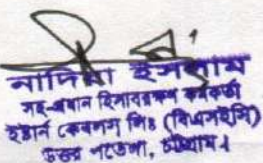 নাদিমা ইসলাম
সহ-প্রধান হিসাবরক্ষণ কর্মকর্তা
ইষ্টার্ন কেবলস লিঃ (বিএসইসি)
উত্তর পতেঙ্গা, চট্টগ্রাম।